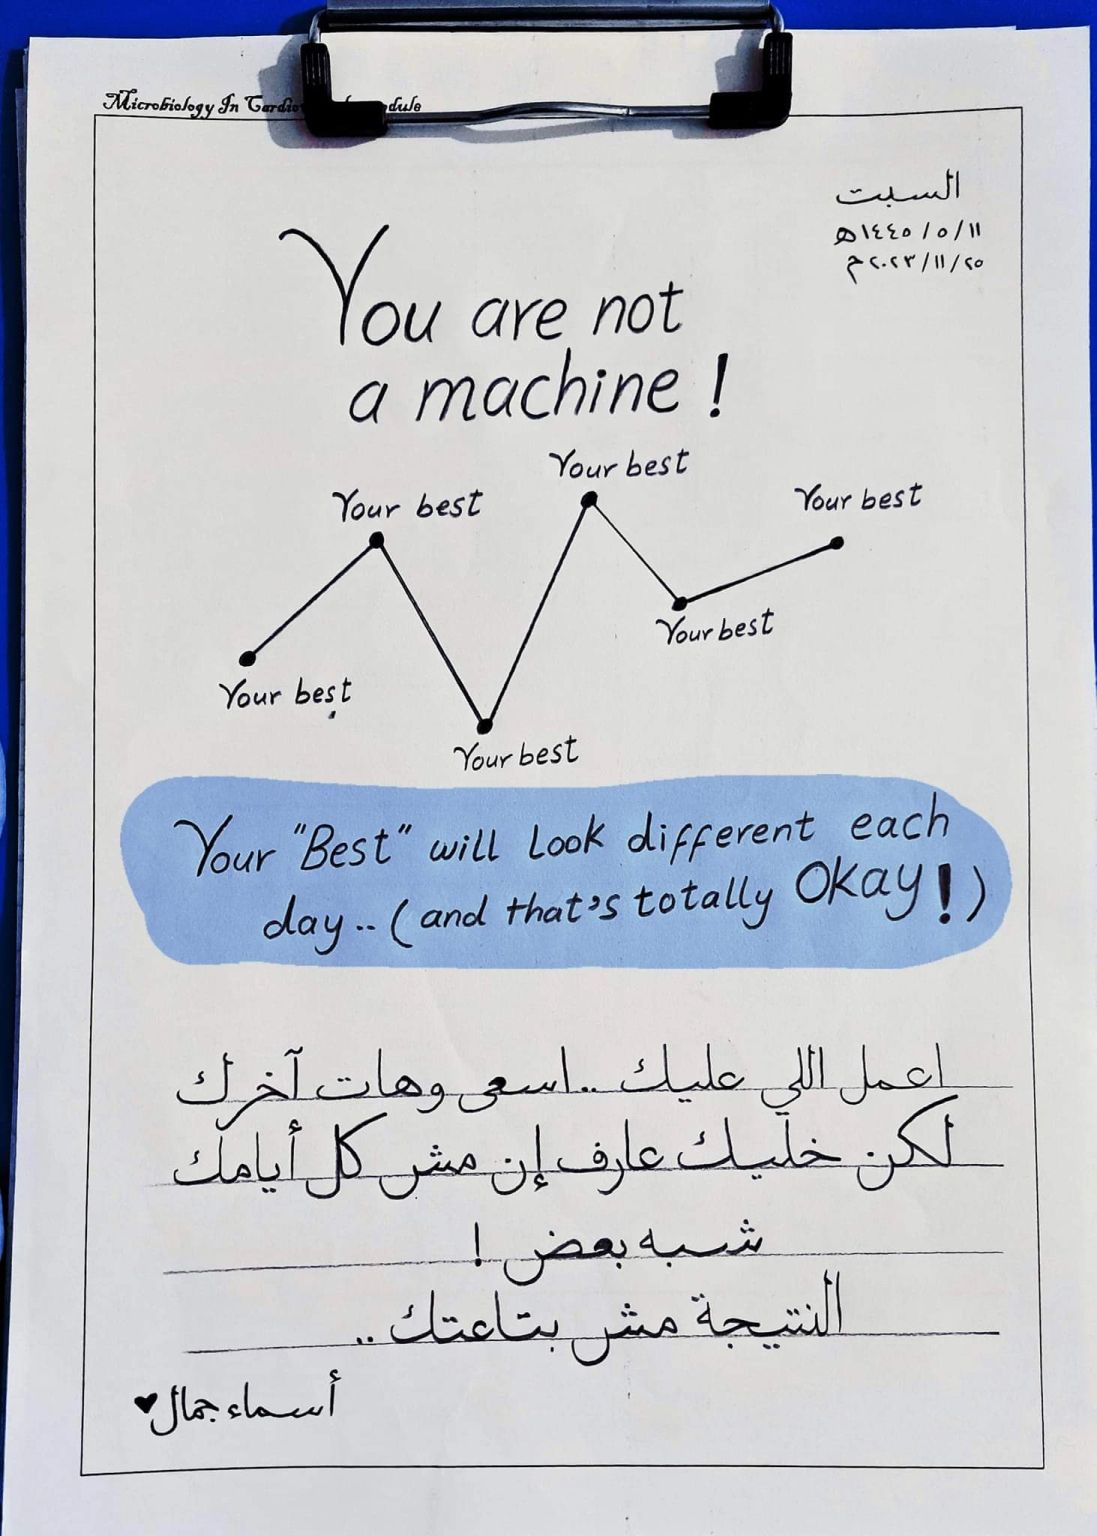 Microbiology In
السبت
١١/ ٥/ ١٤٤٥هـ
٢٥/ ١١/ ٢٠٢٣م
You are not
a machine !
Your best
Your best
Your best
Your best
Your best
Your best
Your "Best" will look different each
day.. (and that's totally OKAY!)
اعمل اللي عليك .. اسعى وهات آخرك
لكن خليك عارف إن مش كل أيامك
شبه بعض !
النتيجة مش بتاعتك ..
أسماء جمال♥